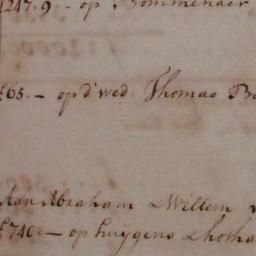 1247.9.- op Bommenaer
£65.- op d'wed. Thomas Bo
Aan Abraham & Willem
£740.- op huijgens & Lotha